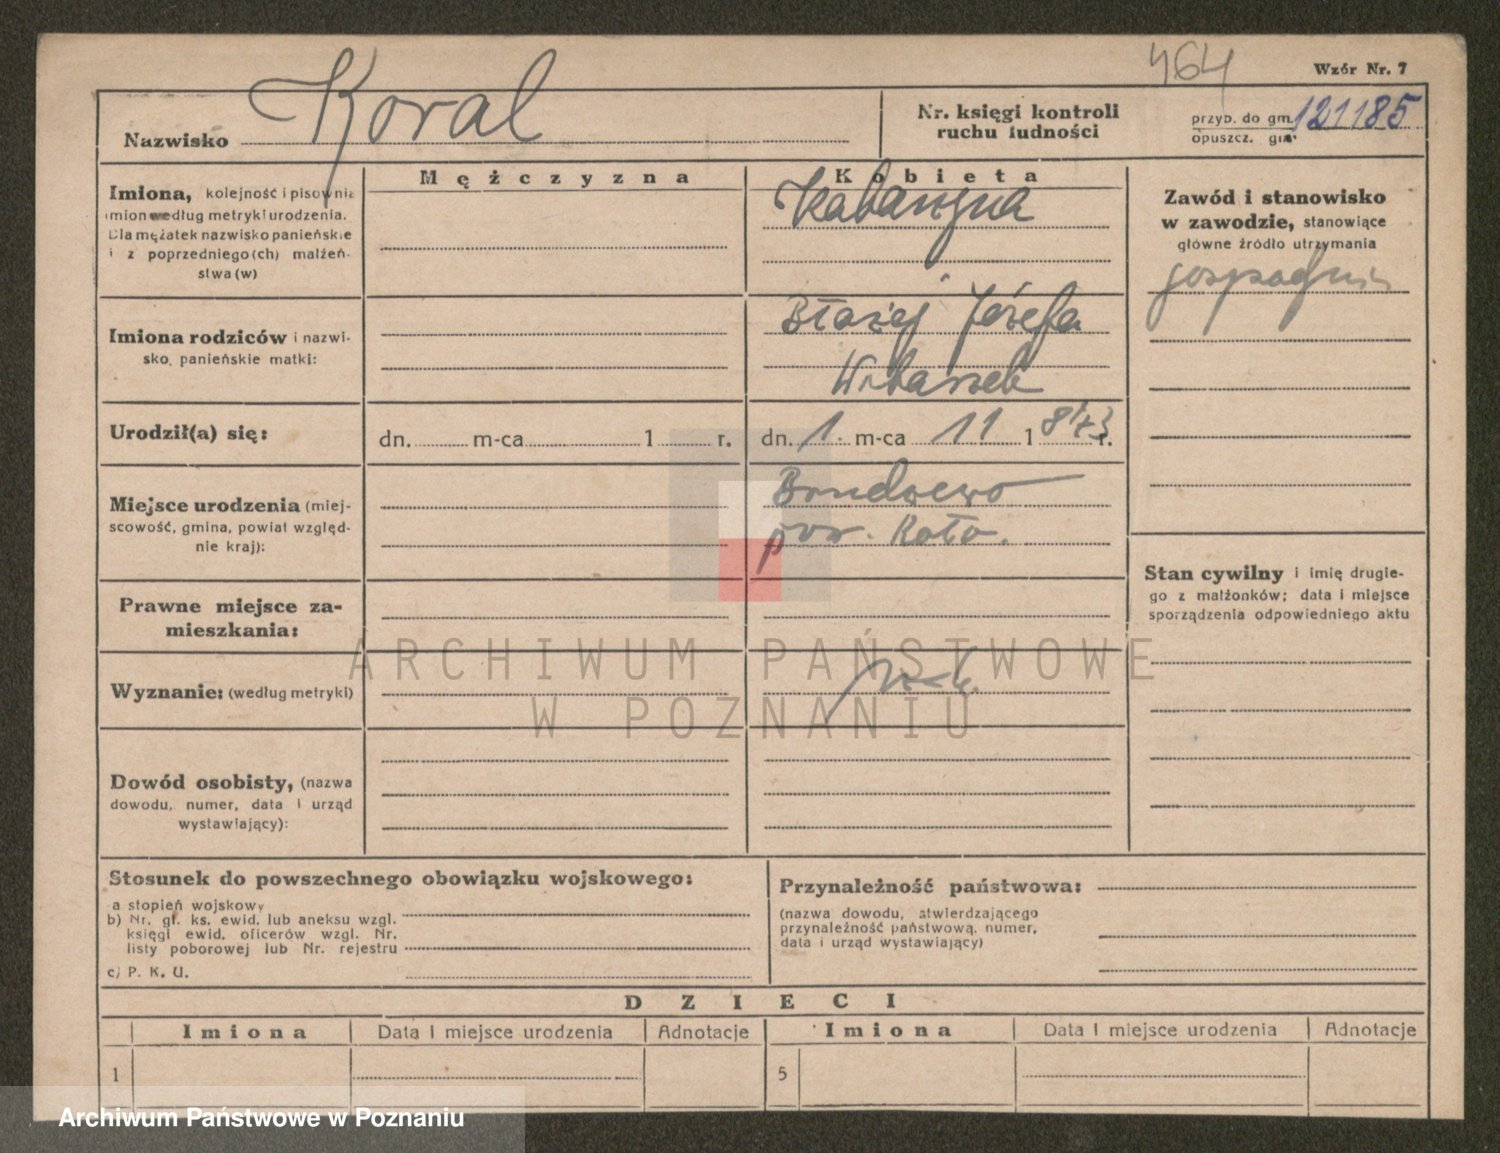 464
Wzór Nr. 7
Nazwisko Koral
Nr. księgi kontroli
ruchu ludności
przyp. do gm. 121185
opuszcz. gm.
Mężczyzna
Kobieta
Imiona, kolejność i pisownia
imion według metryki urodzenia.
Dla mężatek nazwisko panieńskie
i z poprzedniego(ch) małżeń-
stwa(w)
Zawód i stanowisko
w zawodzie, stanowiące
główne źródło utrzymania
Imiona rodziców i nazwi-
sko, panieńskie matki:
Błażej Józefa
Urodził(a) się:
dn. m-ca 1 r.
dn. 1. m-ca 11 1 r.
Miejsce urodzenia (miej-
scowość, gmina, powiat względ-
nie kraj):
pow. Koło.
Prawne miejsce za-
mieszkania:
Stan cywilny i imię drugie-
go z małżonków; data i miejsce
sporządzenia odpowiedniego aktu
Wyznanie: (według metryki)
Dowód osobisty, (nazwa
dowodu, numer, data i urząd
wystawiający):
Stosunek do powszechnego obowiązku wojskowego:
a stopień wojskowy
b) Nr. gł. ks. ewid. lub aneksu wzgl.
księgi ewid. oficerów wzgl. Nr.
listy poborowej lub Nr. rejestru
c) P. K. U.
Przynależność państwowa:
(nazwa dowodu, stwierdzającego
przynależność państwową, numer,
data i urząd wystawiający)
DZIECI
Imiona
Data i miejsce urodzenia
Adnotacje
Imiona
Data i miejsce urodzenia
Adnotacje
1
5
ARCHIWUM PAŃSTWOWE
W POZNANIU
Archiwum Państwowe w Poznaniu